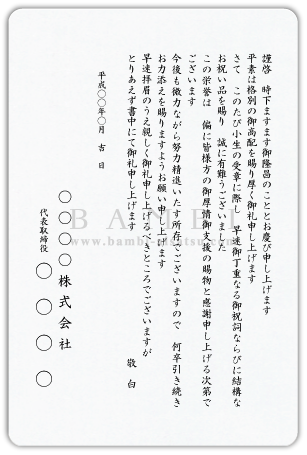 謹啓　時下ますます御隆昌のこととお慶び申し上げます
平素は格別の御高配を賜り厚く御礼申し上げます
さて　このたび小生の受章に際し　早速御丁重なる御祝詞ならびに結構な
お祝い品を賜り　誠に有難うございました
この栄誉は　偏に皆様方の御厚情御支援の賜物と感謝申し上げる次第で
ございます
今後も微力ながら努力精進いたす所存でございますので　何卒引き続き
お力添えを賜りますようお願い申し上げます
早速拝眉のうえ親しく御礼申し上げるべきところでございますが
とりあえず書中にて御礼申し上げます
敬　白
平成○○年○月　吉　日
○○○○株式会社
代表取締役　○○○○